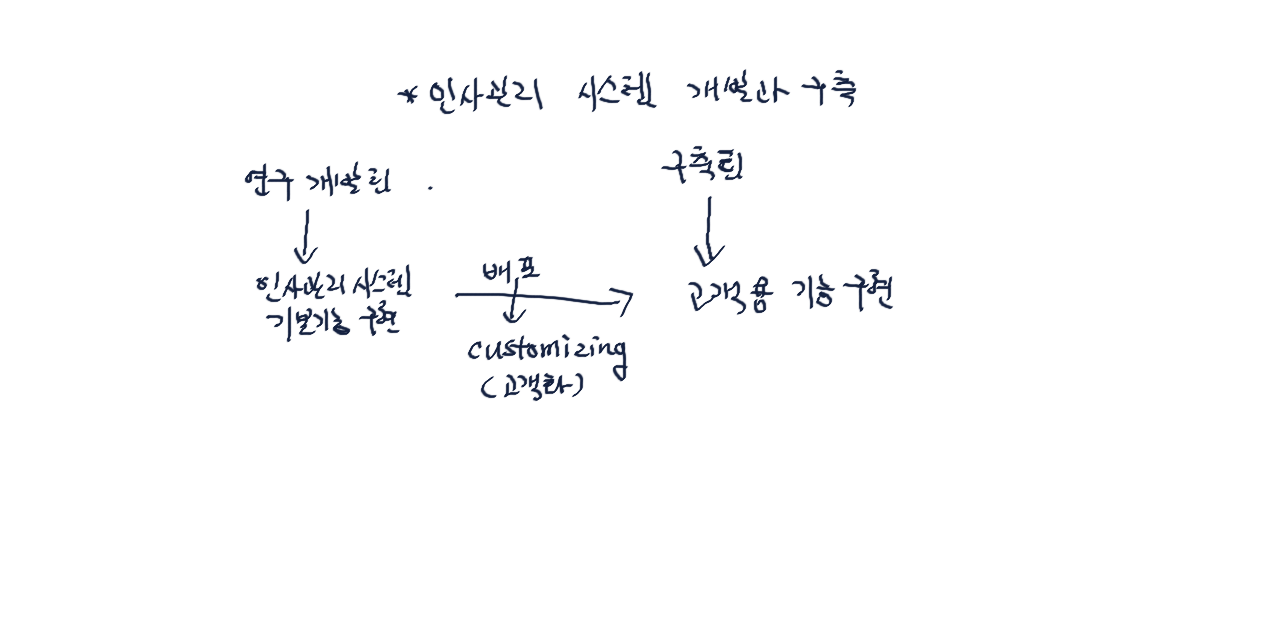 * 인사관리 시스템 개발과 구축
연구 개발팀
구축팀
인사관리 시스템
기본기능 구현
배포
customizing
(고객화)
고객용 기능 구현